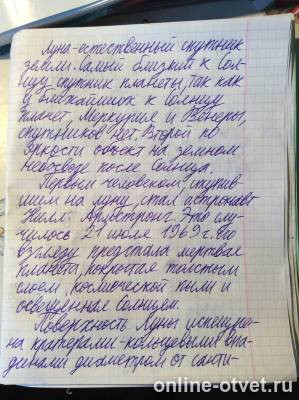 Луна-естественный спутник
земли. Самый близкий к Сол-
нцу спутник планеты, так как
у ближайших к Солнцу
планет, Меркурия и Венеры,
спутников нет. Второй по
яркости объект на земном
небосводе после Солнца.
Первым человеком, ступив-
шим на луну, стал астронавт
Нилл Армстронг. Это слу-
чилось 21 июля 1969 г. Го
взгляду предстала мертвая
планета, покрытая толстым
слоем, космической пыли и
освещенная Солнцем.
Поверхность Луны испещре-
на кратерами-кольцевыми впа-
динами диаметром от санти-
online-otvet.ru